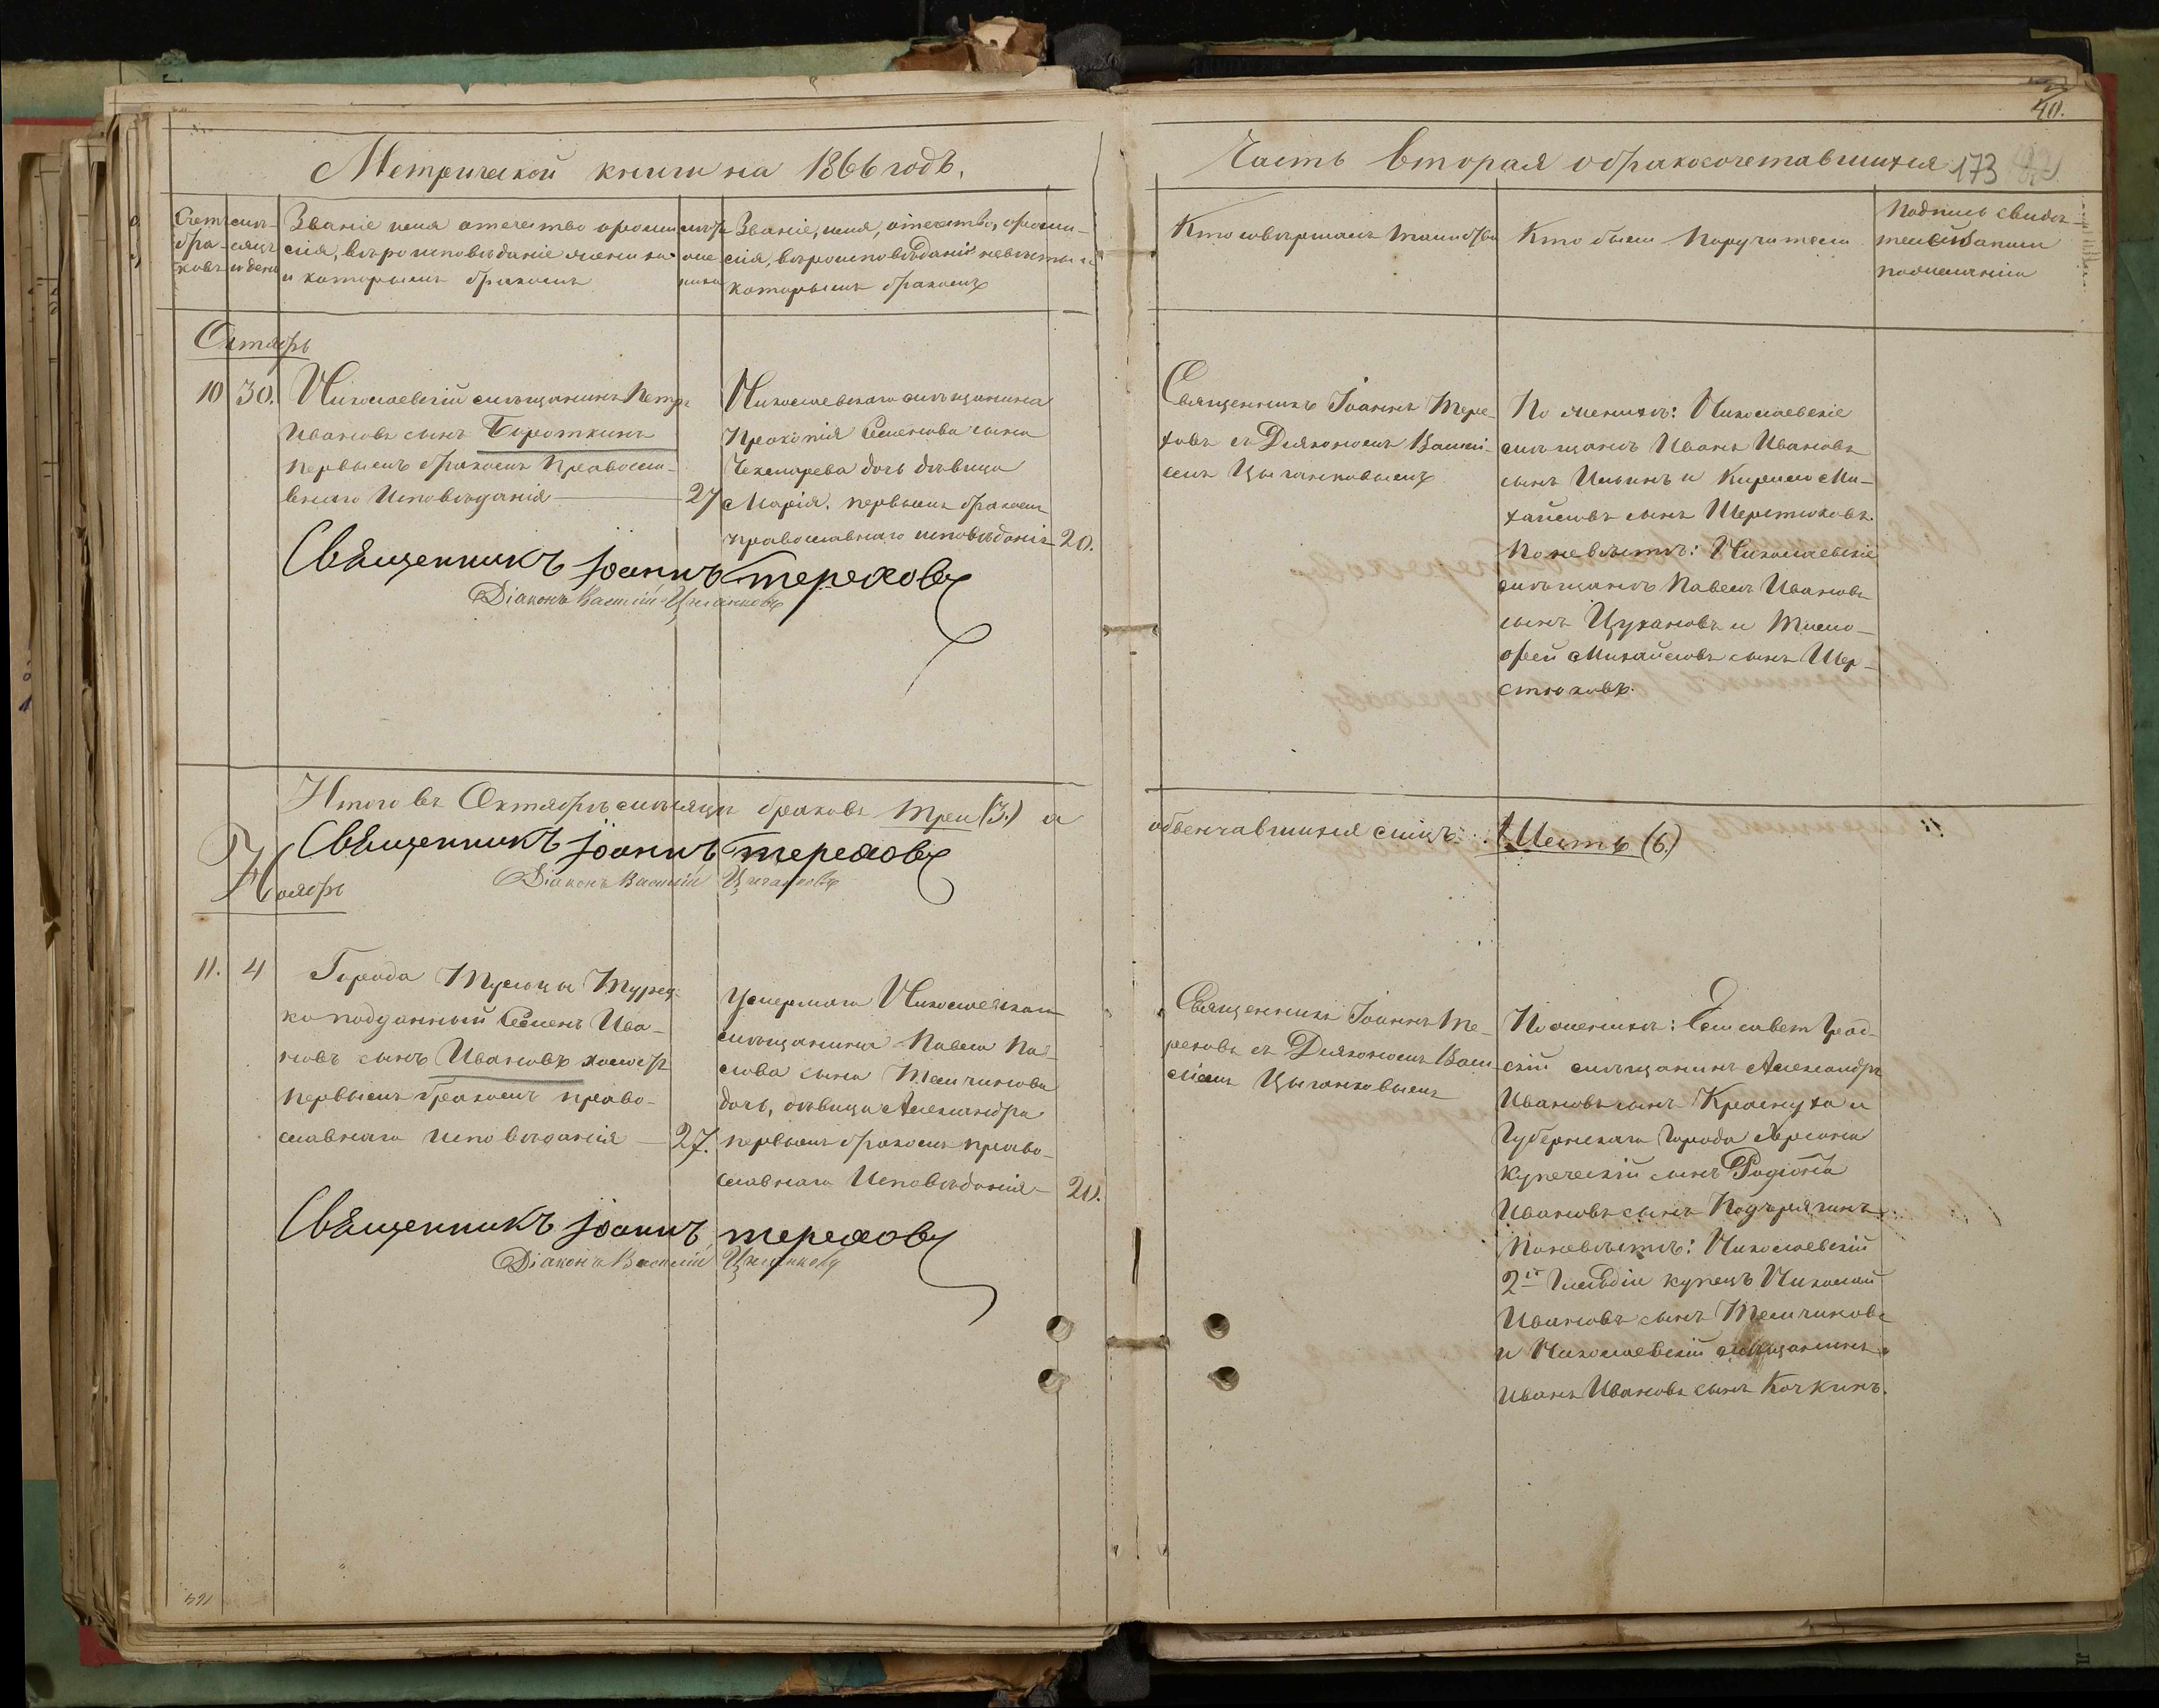 40.
Метрической книги на 1866 годъ.
Часть вторая о бракосочетавшихся 173
Счетъ браковъ
месяцъ и день
Званіе имя отчество фамилія, вѣроисповѣданіе жениха и которымъ бракомъ
Званіе, имя, отчество, фамилія, вѣроисповѣданіе невѣсты и которымъ бракомъ
Кто совершалъ таинство
Кто были поручители
Подпись свидѣтелей записи по желанію
Октябрь
10 30.
Николаевскій мѣщанинъ Петръ
Ивановъ сынъ
первымъ бракомъ православ-
внаго исповѣданія 27
Николаевскаго мѣщанина
Прокопія Семенова сына
Чекмарева дочь дѣвица
Марія, первымъ бракомъ
православнаго исповѣданія 20.
Священникъ Іоаннъ Тере-
ховъ съ Діякономъ Васілі-
емъ Цыганковымъ
По женихѣ: Николаевскіе
мѣщане Иванъ Ивановъ
сынъ Ильинъ и Кирило Ми-
хайловъ сынъ Шерстюковъ.
По невѣстѣ: Николаевскіе
мѣщане Павелъ Ивановъ
сынъ Цухановъ и Тимо-
фей Михайловъ сынъ Шер-
стюковъ.
Священникъ Іоаннъ Тереховъ
Діаконъ Василій Цыганковъ
Итого въ Октябрѣ мѣсяцѣ браковъ три (3.) а
обвенчавшихся лицъ: Шесть (6.)
Священникъ Іоаннъ Тереховъ
Діаконъ Василій Цыганковъ
Ноябрь
11. 4
Города Тульчи Турец-
ко подданный Семенъ Ива-
новъ сынъ Ивановъ холостъ
первымъ бракомъ право-
славнаго исповѣданія 27.
Умершаго Николаевскаго
мѣщанина Павла Па-
лова сына Темчикова
дочь, дѣвица Александра
первымъ бракомъ право-
славнаго исповѣданія 20.
Священникъ Іоаннъ Те-
реховъ съ Діякономъ Васи-
ліемъ Цыганковымъ
По женихѣ: Елисаветград-
скій мѣщанинъ Александръ
Ивановъ сынъ Краснуха и
Губернскаго города Херсона
купеческій сынъ Родіонъ
Ивановъ сынъ
По невѣстѣ: Николаевскій
2й Гильдіи купецъ Николай
Ивановъ сынъ Темчиковъ
и Николаевскій мѣщанинъ
Иванъ Ивановъ сынъ Кочкинъ.
Священникъ Іоаннъ Тереховъ
Діаконъ Василій Цыганковъ